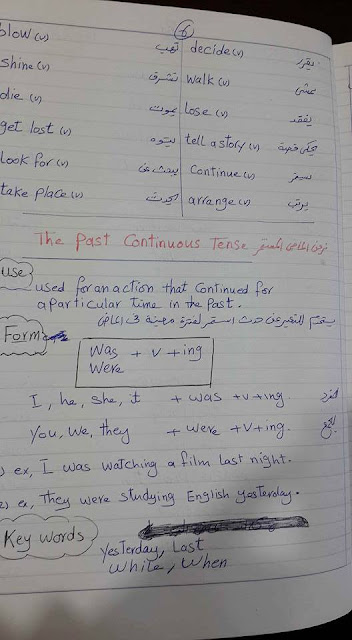 6
blow (v) تهب decide (v) يقرر
shine (v) تشرق walk (v) يمشى
die (v) يموت lose (v) يفقد
get lost (v) يتوه tell a story (v) يحكى قصة
Look for (v) يبحث عن Continue (v) يستمر
take place (v) يحدث arrange (v) يرتب
The Past Continuous Tense زمن الماضى المستمر
use
used for an action that continued for
a particular time in the past.
يستخدم للتعبير عن حدث استمر لفترة معينة فى الماضى
Form
Was + v + ing
Were
I, he, she, it + was + v + ing. المفرد
You, We, they + were + v + ing. الجمع
1) ex, I was watching a film last night.
2) ex, They were studying English yesterday.
Key words
yesterday, Last
While, When